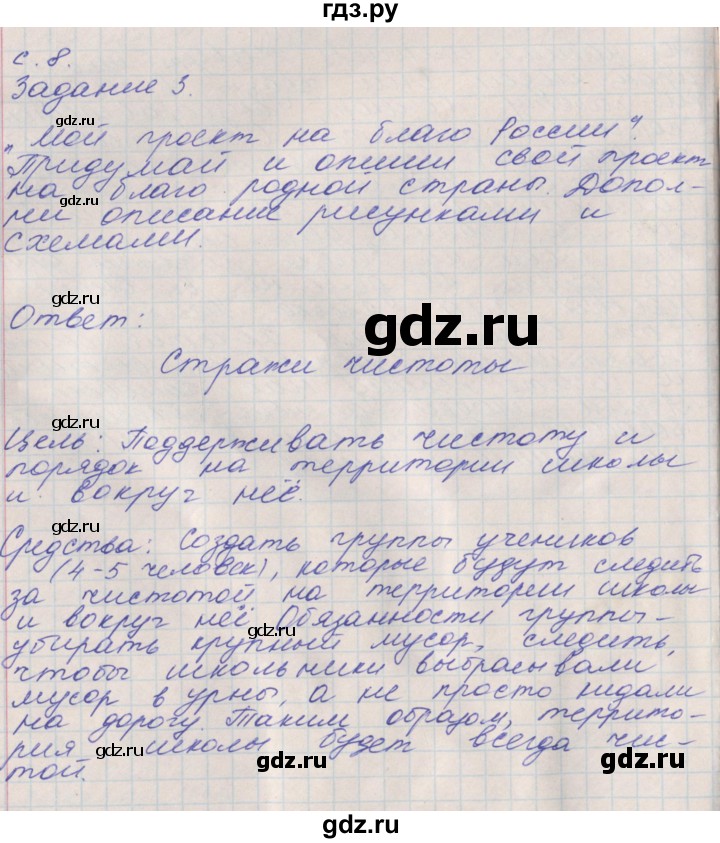 гдз.ру
с. 8.
Задание 3.
gdz.ru
"Мой проект на благо России".
Придумай и опиши свой проект
на благо родной страны. Допол-
gdz.ru
gdz.ru
ни описание рисунками и
схемами.
gdz.ru
Ответ:
gdz.ru
gdz.ru
Стражи чистоты
gdz.ru
Цель: Поддерживать чистоту и
порядок на территории школы
и вокруг неё.
gdz.ru
gdz.ru
Средства: Создать группы учеников
(4-5 человек), которые будут следить
за чистотой на территории школы
и вокруг неё. Обязанности группы -
gdz.ru
убирать крупный мусор, следить,
чтобы школьники выбрасывали
мусор в урны, а не просто кидали
на дорогу. Таким образом, террито-
gdz.ru
gdz.ru
рия школы будет всегда чис-
той.
gdz.ru
gdz.ru
gdz.ru